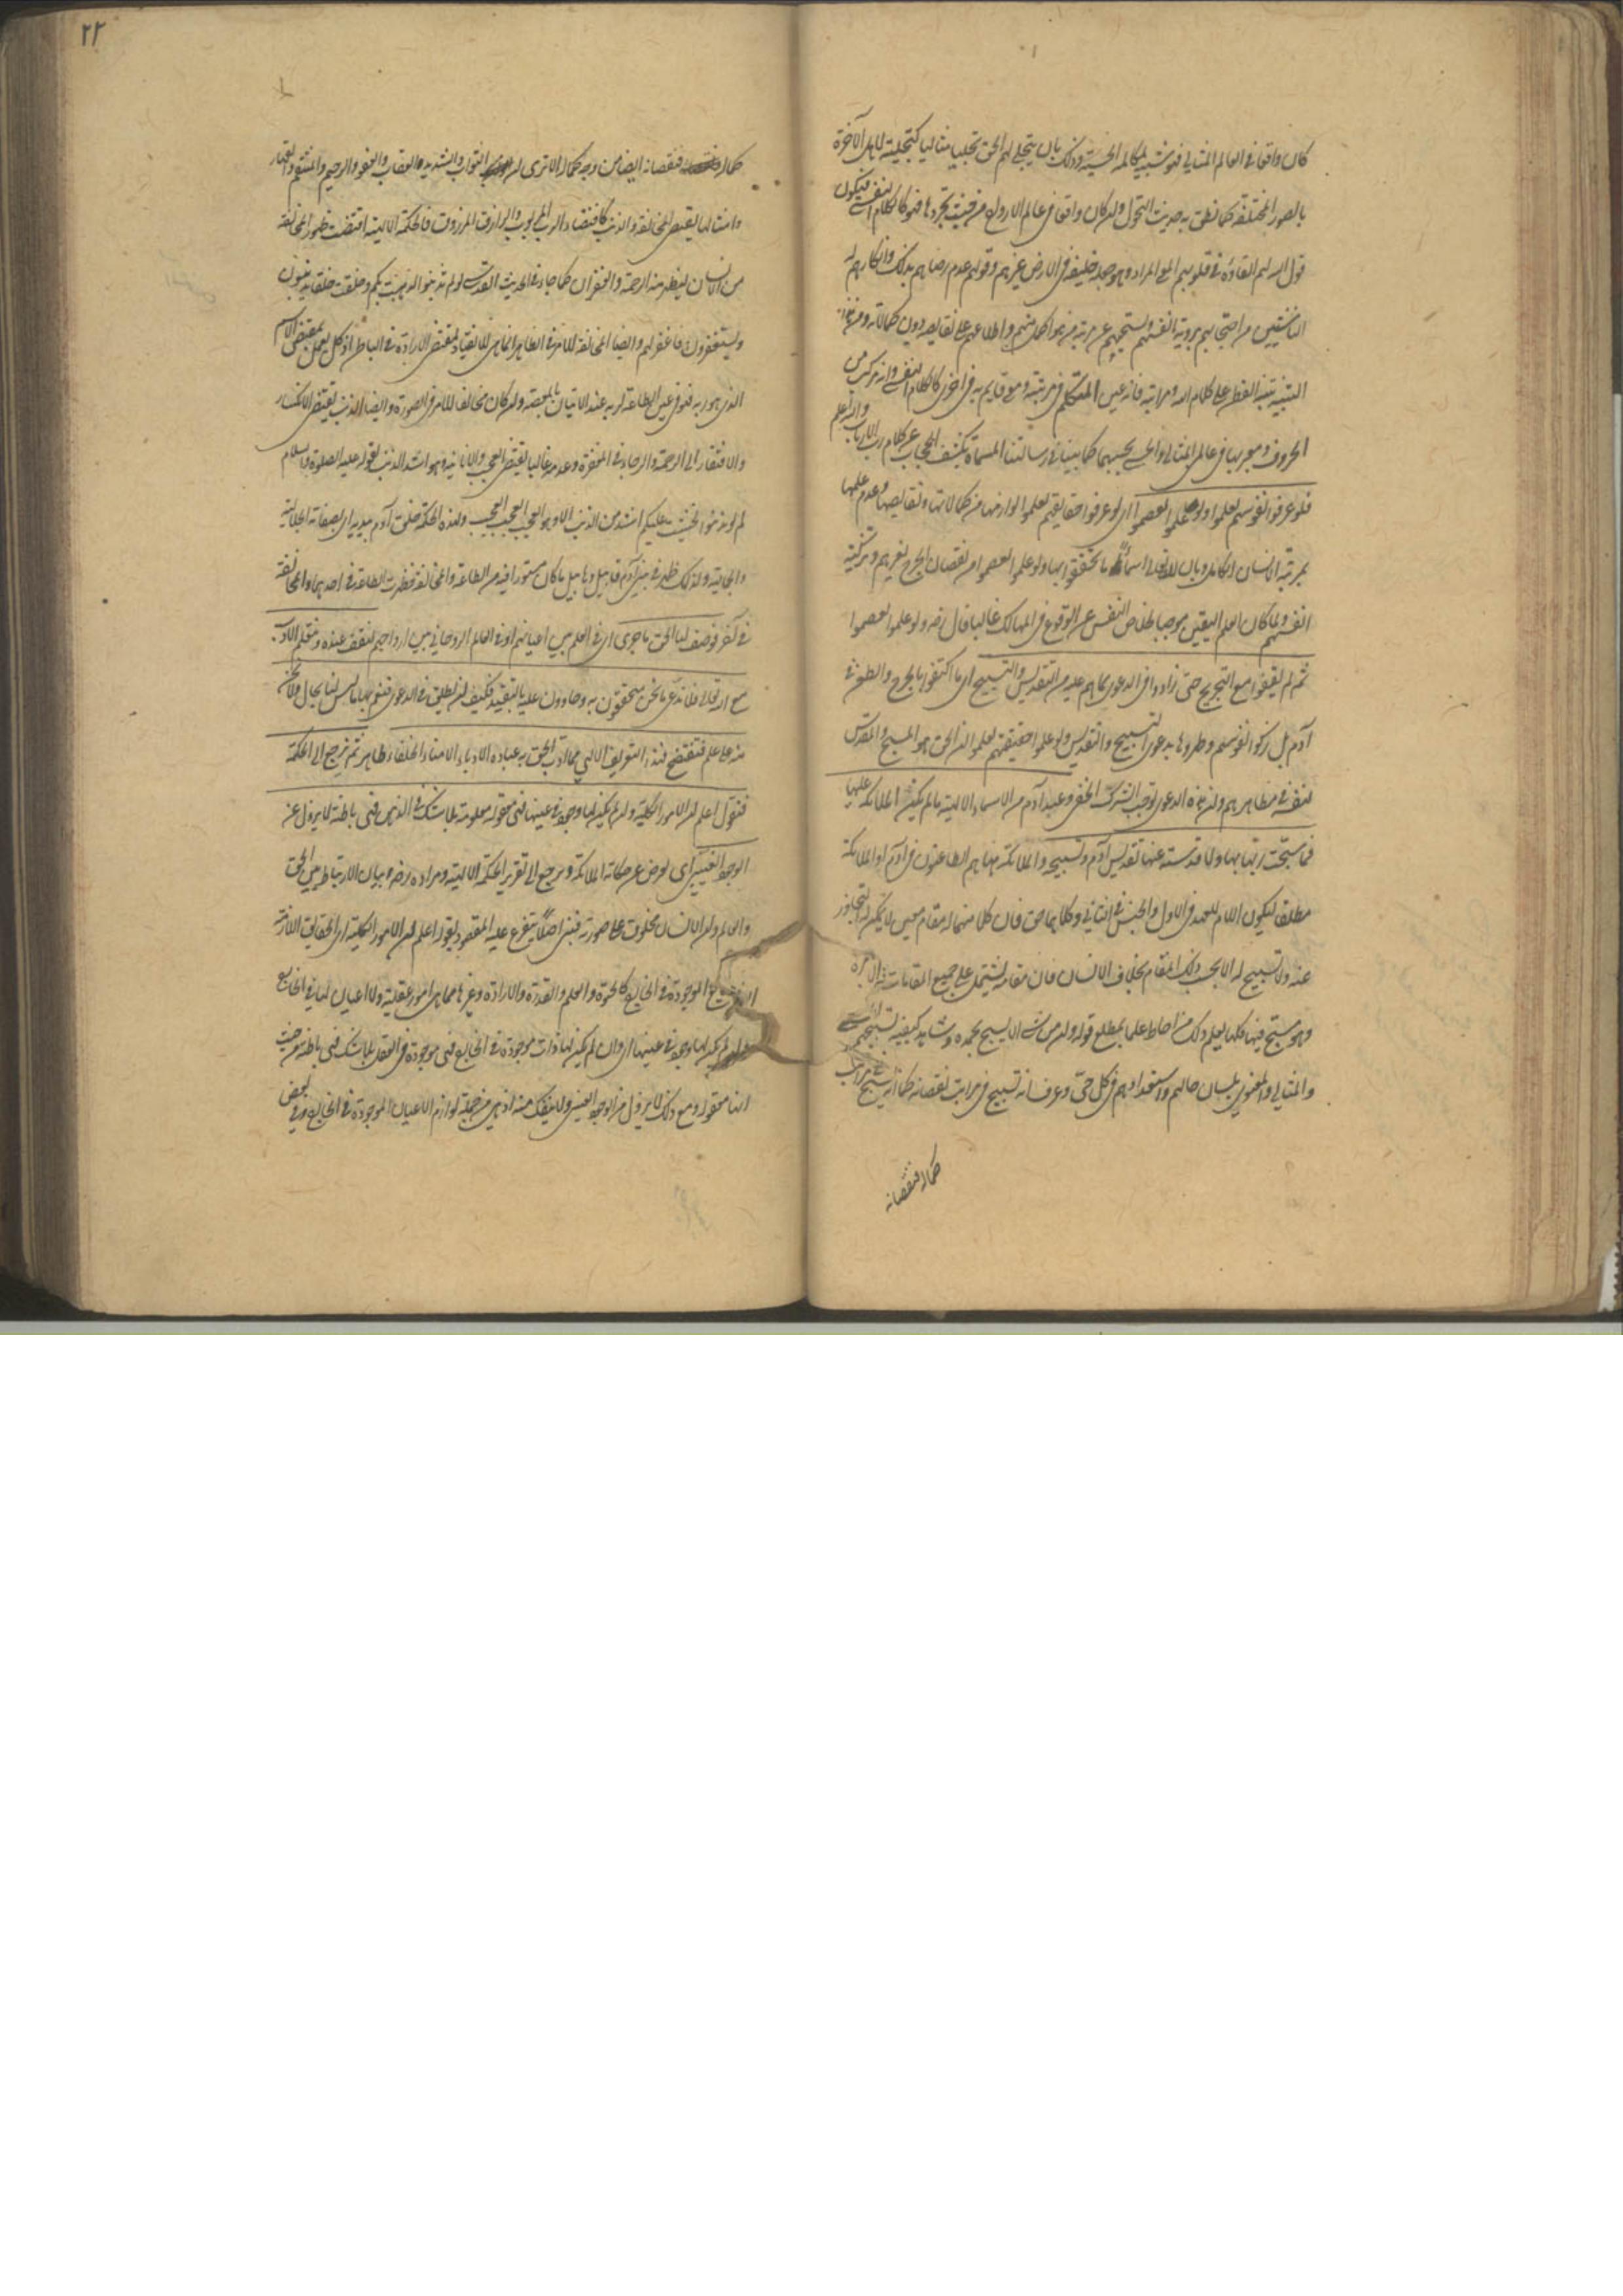 كان واقعا في العالم المثالي فهو شبيه بالمكالمة الحسية وذلك بان يتجلى لهم الحق تجليا مثاليا كتجليه لاهل الآخرة
بالصور المختلفة كما نطق به حديث التحول وان كان واقعا في عالم الارواح من حيث تجردها فهو كالكلام النفسي فيكون
قول الله لهم القاؤه في قلوبهم المعنى المراد وهو جعله خليفة في الارض غيرهم وقولهم عدم رضاهم بذلك وانكارهم له
الناشئين من احتجابهم برؤية انفسهم وتسبيحهم عن مرتبة من هو اكمل منهم واطلاعهم على نقايصه دون كمالاته ومن هذا
التنبيه يتنبه الفطن على كلام الله ومراتبه فانه عين المتكلم في مرتبة ومعنى قايم به في اخرى كالكلام النفسي وانه مركب من
الحروف ومعبر بها في عالمي المثالي والحسي بحسبهما كما بيناه في رسالتنا المسماة بكشف الحجاب عن كلام رب الارباب والله اعلم
فلو عرفوا نفوسهم لعلموا ولو علموا لعصموا اي لو عرفوا حقايقهم لعلموا لوازمها من كمالاتها ونقايصها وعدم علمها
بمرتبة الانسان الكامل وبان لله تعالى اسماء ما تحققوا بها ولو علموا لعصموا من نقصان الجرح لغيرهم وتزكية
انفسهم ولما كان العلم اليقين موجبا لخلاص النفس عن الوقوع في المهالك غالبا قال رضه ولو علموا لعصموا
ثم لم يقفوا مع التجريح حتى زادوا في الدعوى بما هم عليه من التقديس والتسبيح اي ما اكتفوا بالجرح والطعن في
آدم بل زكوا نفوسهم وظهروا بدعوى التسبيح والتقديس ولو علموا حقيقتهم لعلموا ان الحق هو المسبح والمقدس
لنفسه في مظاهرهم وان هذه الدعوى توجب الشرك الخفي وعند آدم من الاسماء الالهية ما لم يكن الملائكة عليها
فما سبحت ربها بها ولا قدسته عنها تقديس آدم وتسبيحه والملائكة هنا هم الطاعنون في آدم او الملائكة
مطلقا ليكون اللام للعهد في الاول والجنس في الثاني وكلاهما حق فان كلا منهما له مقام معين لا يمكن له التجاوز
عنه ولا تسبيح له الا بحسب ذلك المقام بخلاف الانسان فان مقامه يشتمل على جميع المقامات
وهو مسبح فيها كلها يعلم ذلك من احاط علما بمطلع قوله وان من شيء الا يسبح بحمده وشاهد كيفية تسبيحهم الحسي
والمثالي والمعنوي بلسان حالهم واستعدادهم في كل حين وعرف انه تسبيح في مراتب نقصانه كما انه يسبح في مراتب
كماله فنقصانه
٢٢
كماله فنقصانه ايضا من وجه كماله الا ترى ان التواب والشديد والعقاب والعفو والرحيم والمنتقم والقهار
وامثالها يقتضي المخالفة والذنب كاقتضاء الرب المربوب والرازق المرزوق فالحكمة الالهية اقتضت ظهور المخالفة
من الانسان ليظهر منه الرحمة والغفران كما جاء في الحديث القدسي لو لم تذنبوا لذهبت بكم وخلقت خلقا يذنبون
ويستغفرون فاغفر لهم وايضا المخالفة للامر في الظاهر انما هي للانقياد لمقتضى الارادة في الباطن اذ كل يعمل بمقتضى الاسم
الذي هو ربه فهو في عين الطاعة لربه عند الاتيان بالمعصية وان كان مخالفا للامر في الصورة وايضا الذنب يقتضي الانكسار
والافتقار الى الرحمة والرجاء في المغفرة وعدمه غالبا يقتضي العجب والانانية وهو اشد الذنب لقوله عليه الصلوة والسلام
لو لم تذنبوا لخشيت عليكم اشد من الذنب الا وهو العجب العجب العجب ولهذه الحكمة خلق آدم بيديه اي بصفاته الجلالية
والجمالية ولذلك ظهر في بني آدم قابيل وهابيل ما كان مستورا فيه من الطاعة والمخالفة فظهرت الطاعة في احدهما والمخالفة
في آخر فوصف لنا الحق ما جرى اي في العلم بين اعيانهم او في العالم الروحاني بين ارواحهم لنقف عنده ونتعلم الادب
مع الله تعالى فلا ندعي ما نحن متحققون به وحاوون عليه بالتقييد فكيف ان نطلق في الدعوى فنعم بها ما ليس لنا بحال ولا نحن
منه على علم فنفتضح فهذا التعريف الالهي مما ادب الحق به عباده الادباء الامناء الخلفاء ظاهر ثم نرجع الى الحكمة
فنقول اعلم ان الامور الكلية وان لم يكن لها وجود في عينها فهي معقولة معلومة بلا شك في الذهن فهي باطنة لا يزول عن
الوجود العيني اي اعرض عن حكاية الملائكة ورجع الى تقرير الحكمة الالهية ومراده رضه بيان الارتباط بين الحق
والعالم وان الانسان مخلوق على صورته فبنى اصلا يتفرع عليه المقصود بقوله اعلم ان الامور الكلية اي الحقايق اللازمة
الموجودة في الخارج كالحيوة والعلم والقدرة والارادة وغيرها مما هي امور عقلية ولا اعيان لها في الخارج
وان لم يكن لها وجود في عينها اي وان لم يكن لها ذات موجودة في الخارج فهي موجودة في العقل بلا شك فهي باطنة من حيث
انها معقولة ومع ذلك لا يزول من الوجود العيني ولا ينفك منه اذ هي من جملة لوازم الاعيان الموجودة في الخارج وفي بعض